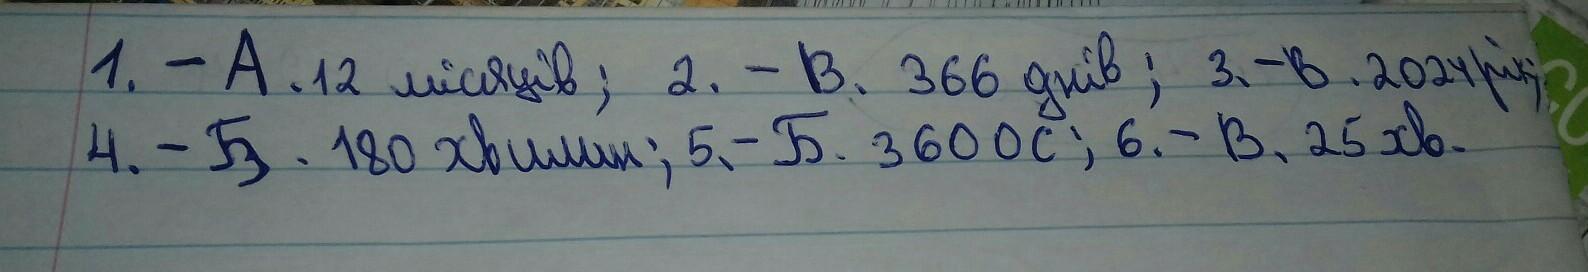 1. - А. 12 місяців; 2. - В. 366 днів; 3. - В. 2024 рік;
4. - Б. 180 хвилин; 5. - Б. 3600 С; 6. - В. 25 хв.